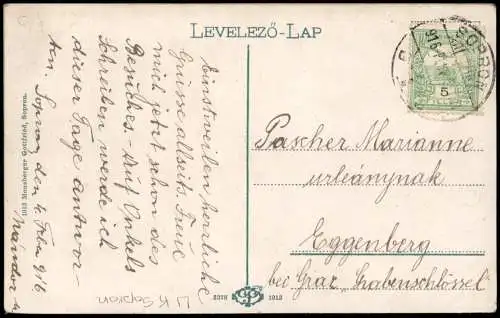 LEVELEZŐ-LAP
Einstweilen herzliche
Grüsse allseits. Freue
mich jetzt schon des
Besuches. Auf Onkels
Schreiben werde ich
dieser Tage antwor-
ten. Sopron den 4. Feber 916
Nándor
Pascher Marianne
urleánynak
Eggenberg
bei Graz "Grabenschlössel"
SOPRON
916
5
1913 Monsberger Gottfried, Sopron.
1913
Sopron